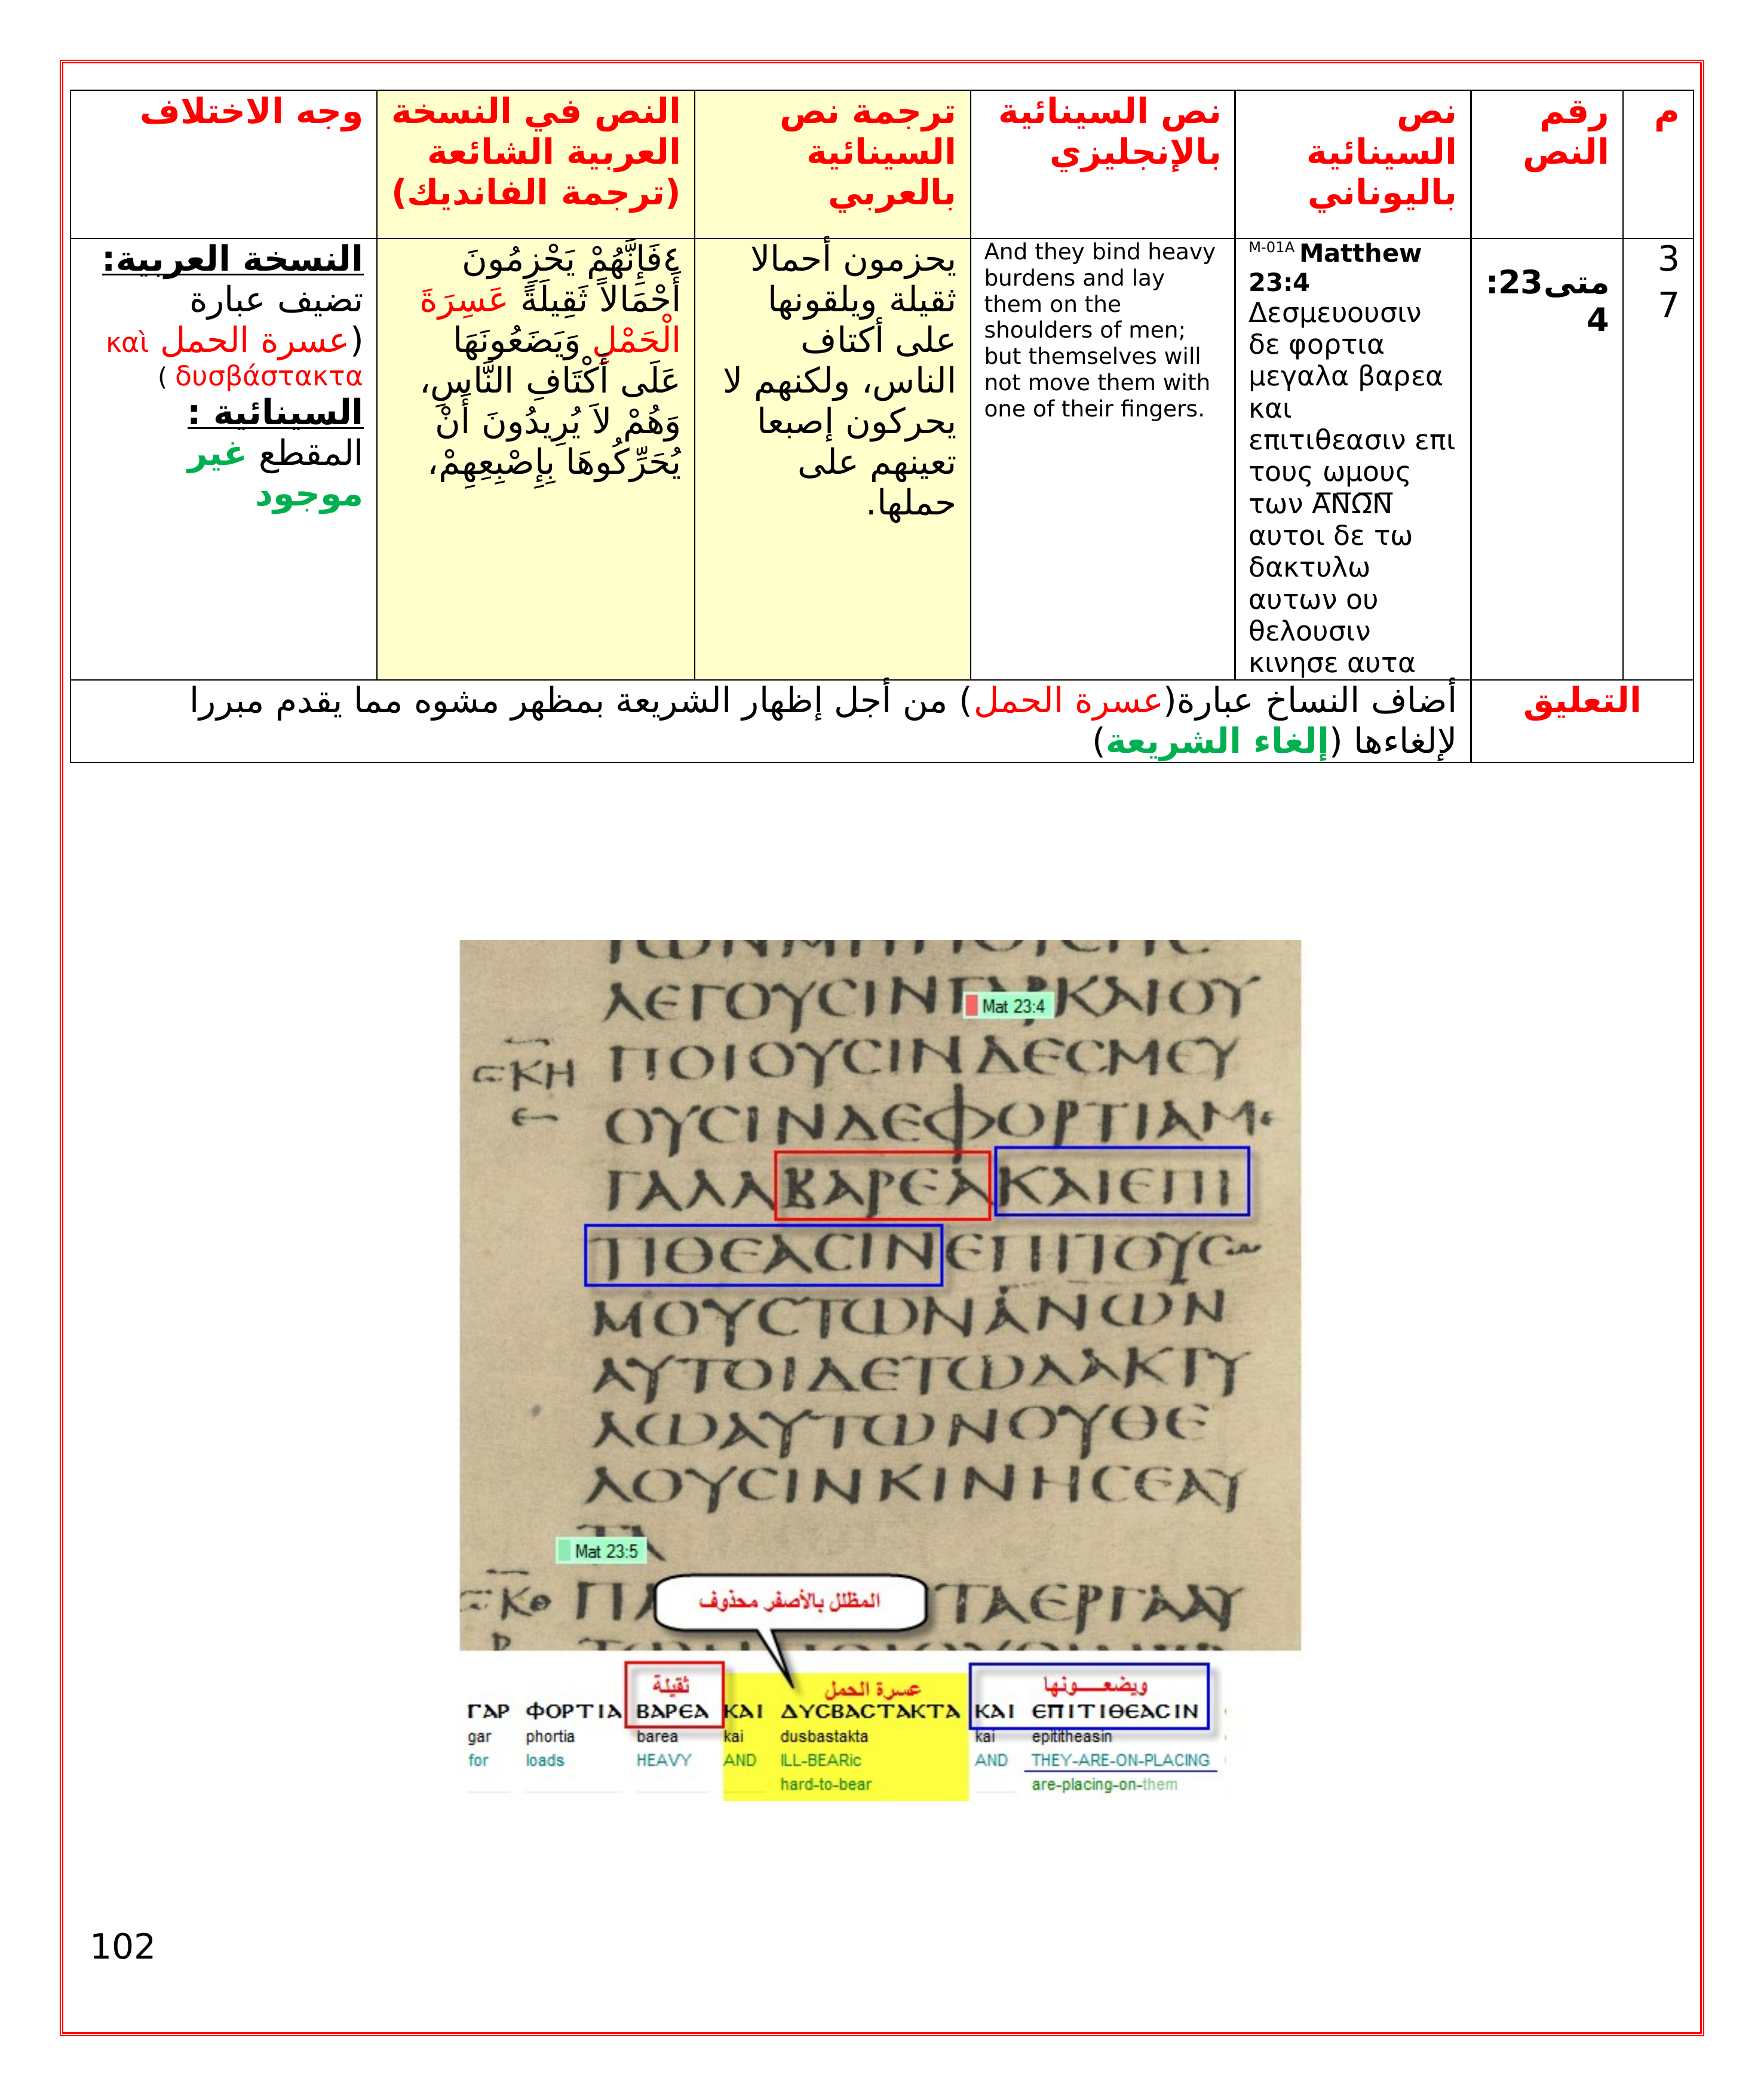 م
رقم
النص
نص
السينائية
باليوناني
نص السينائية
بالإنجليزي
ترجمة نص
السينائية
بالعربي
النص في النسخة
العربية الشائعة
(ترجمة الفانديك)
وجه الاختلاف
3
7
متى23:
4
M-01A Matthew
23:4
Δεσμευουσιν
δε φορτια
μεγαλα βαρεα
και
επιτιθεασιν επι
τους ωμους
των Α̅Ν̅Ω̅Ν̅
αυτοι δε τω
δακτυλω
αυτων ου
θελουσιν
κινησε αυτα
And they bind heavy
burdens and lay
them on the
shoulders of men;
but themselves will
not move them with
one of their fingers.
يحزمون أحمالا
ثقيلة ويلقونها
على أكتاف
الناس، ولكنهم لا
يحركون إصبعا
تعينهم على
حملها.
٤فَإِنَّهُمْ يَحْزِمُونَ
أَحْمَالاً ثَقِيلَةً عَسِرَةَ
الْحَمْلِ وَيَضَعُونَهَا
عَلَى أَكْتَافِ النَّاسِ،
وَهُمْ لاَ يُرِيدُونَ أَنْ
يُحَرِّكُوهَا بِإِصْبِعِهِمْ،
النسخة العربية:
تضيف عبارة
(عسرة الحمل καὶ
δυσβάστακτα )
السينائية :
المقطع غير
موجود
التعليق
أضاف النساخ عبارة(عسرة الحمل) من أجل إظهار الشريعة بمظهر مشوه مما يقدم مبررا
لإلغاءها (إلغاء الشريعة)
ΛΕΓΟΥCΙΝ ΚΑΙΟΥ
Mat 23:4
ΠΟΙΟΥCΙΝΔΕCΜΕΥ
ΟΥCΙΝΔΕΦΟΡΤΙΑΜε
ΓΑΛΑΒΑΡΕΑΚΑΙΕΠΙ
ΤΙΘΕΑCΙΝΕΠΙΤΟΥCω
ΜΟΥCΤΩΝΑΝΩΝ
ΑΥΤΟΙΔΕΤΩΔΑΚΤΥ
ΛΩΑΥΤΩΝΟΥΘΕ
ΛΟΥCΙΝΚΙΝΗCΕΑΥ
ΤΑ
Mat 23:5
المظلل بالأصفر محذوف
ΤΑΕΡΓΑΑΥ
ثقيلة
عسرة الحمل
ويضعـــونها
ΓΑΡ ΦΟΡΤΙΑ ΒΑΡΕΑ ΚΑΙ ΔΥCΒΑCΤΑΚΤΑ ΚΑΙ ΕΠΙΤΙΘΕΑCΙΝ
gar phortia barea kai dusbastakta kai epititheasin
for loads HEAVY AND ILL-BEARic AND THEY-ARE-ON-PLACING
hard-to-bear are-placing-on-them
102